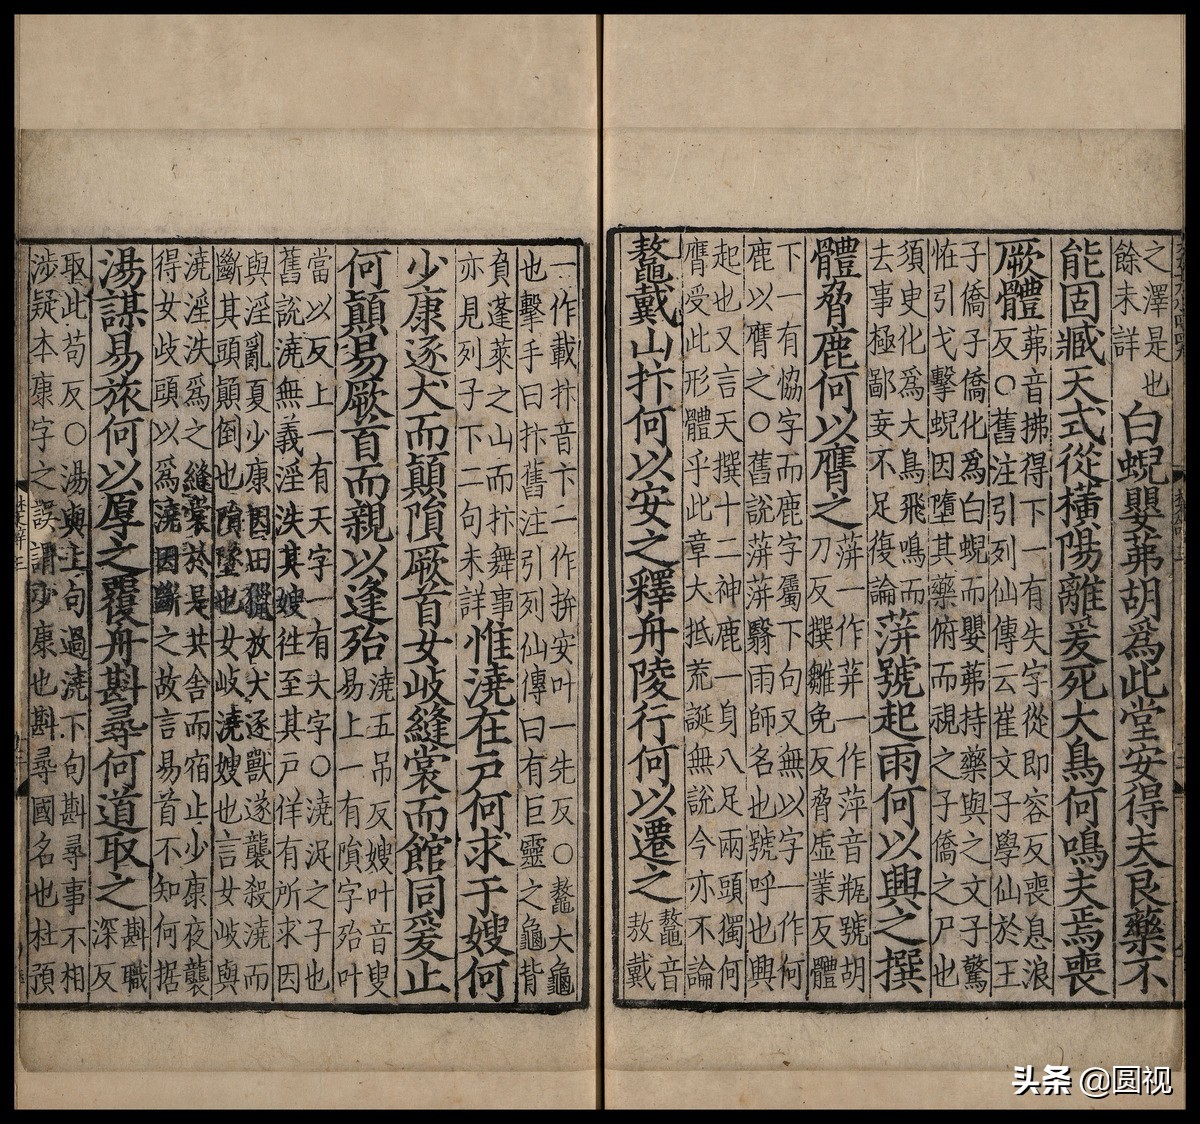 之澤是也
餘未詳
白蜺嬰茀胡爲此堂安得夫良藥不
能固臧天式從橫陽離爰死大鳥何鳴夫焉喪
厥體
茀音拂得下一有失字從即容反喪息浪
反○舊注引列仙傳云崔文子學仙於王
子僑子僑化為白蜺而嬰茀持藥與之文子驚
恠引戈擊蜺因墮其藥俯而視之子僑之尸也
須臾化為大鳥飛鳴而
去事極鄙妄不足復論
蓱號起雨何以興之撰
體脅鹿何以膺之
蓱一作荓一作萍音瓶號胡
刀反撰雛免反脅虛業反體
下一有協字而鹿字屬下句又無以字一作何
鹿以膺之○舊說蓱蓱翳雨師名也號呼也興
起也又言天撰十二神鹿一身八足兩頭獨何
膺受此形體乎此章大抵荒誕無說今亦不論
鼇戴山抃何以安之釋舟陵行何以遷之
鼇音
敖戴
一作載抃音卞二作拚安叶一先反○鼇大龜
也擊手曰抃舊注引列仙傳曰有巨靈之龜背
負蓬萊之山而抃舞事
亦見列子下二句未詳
惟澆在戶何求于嫂何
少康逐犬而顛隕厥首女歧縫裳而館同爰止
何顛易厥首而親以逢殆
澆五吊反嫂叶音叟
易上一有隕字殆叶
當以反上一有天字一有大字○澆浞之子也
舊說澆無義淫泆其嫂往至其戶佯有所求因
與淫亂夏少康因田獵放犬逐獸遂襲殺澆而
斷其頭顛倒也隕墜也女歧澆嫂也言女歧與
澆淫泆爲之縫裳於是共舍而宿止少康夜襲
得女歧頭以爲澆因斷之故言易首不知何据
湯謀易旅何以厚之覆舟斟尋何道取之
斟職
深反
取此苟反○湯與上句過澆下句斟尋事不相
涉疑本康字之誤謂少康也斟尋國名也杜預
头条 @圆视